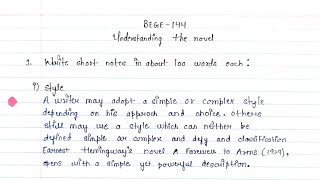 BEGE-144
Understanding the novel
1. Write short notes in about 100 words each:
i) style
A writer may adopt a simple or complex style
depending on his approch and choice. others
still may use a style which can neither be
defined simple or complex and defy and classification
Earnest Hemingway's novel A Farewell to Arms (1929),
opens with a simple yet powerful description.